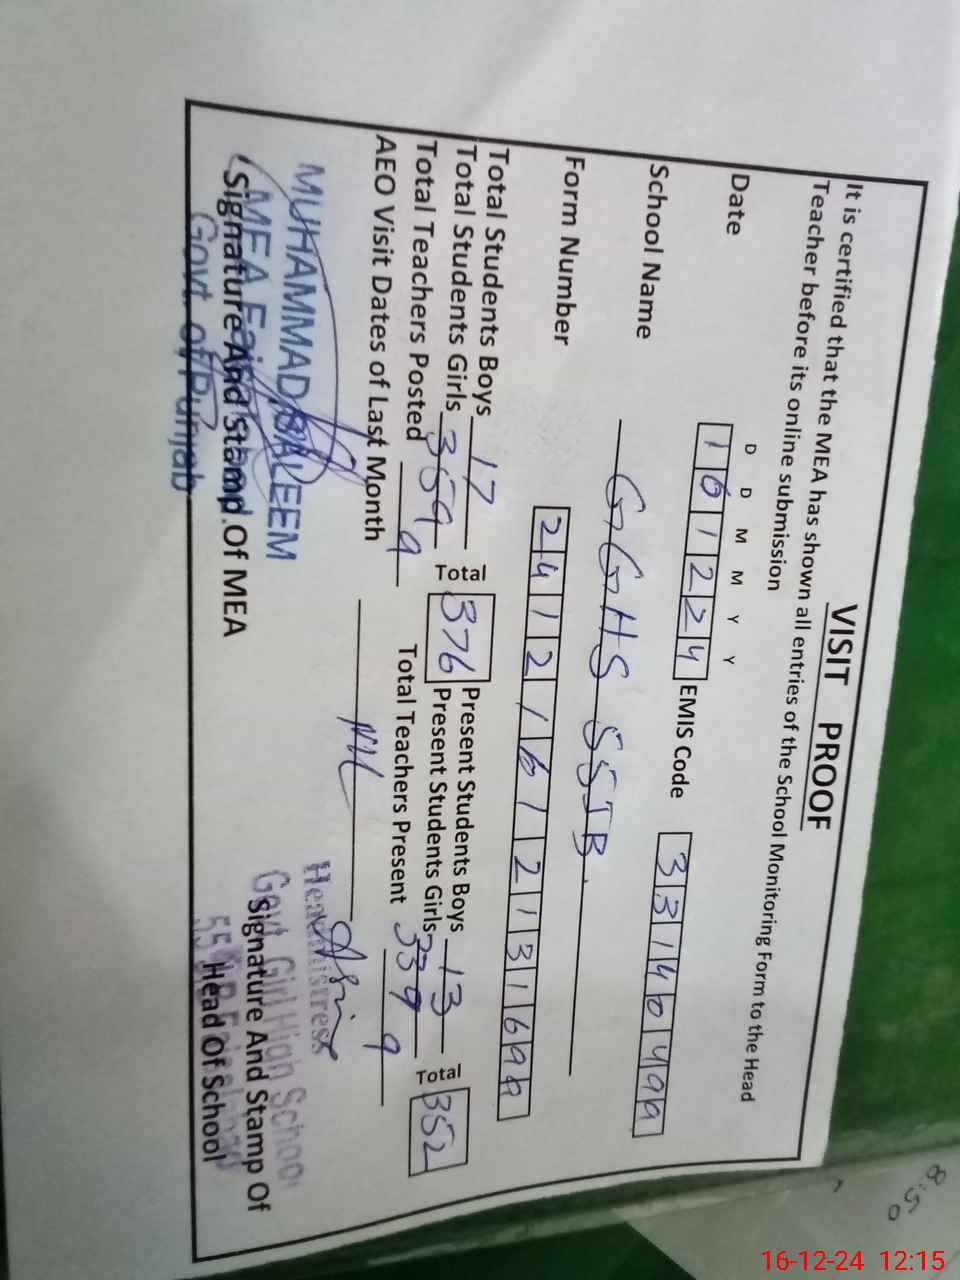 VISIT PROOF
It is certified that the MEA has shown all entries of the School Monitoring Form to the Head
Teacher before its online submission
D D M M Y Y
Date 161224 EMIS Code 33140499
School Name GGHS 55JB.
Form Number 24121612131699
Total Students Boys 17 Total 376 Present Students Boys 13 Total 352
Total Students Girls 359 Present Students Girls 339
Total Teachers Posted 9 Total Teachers Present 9
AEO Visit Dates of Last Month Nil
MUHAMMAD SALEEM
MEA
Signature And Stamp Of MEA
Govt of Punjab
Headmistress
Govt Girl High School
Signature And Stamp Of
Head Of School
8:50
16-12-24 12:15